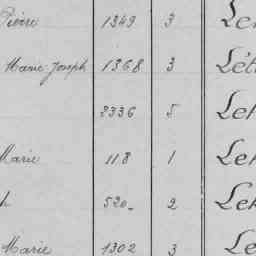 Pierre 1349 3 Le
Marie-Joseph 1368 3 Lét
3336 5 Let
Marie 118 1 Let
h 520 2 Let
Marie 1302 3 Le